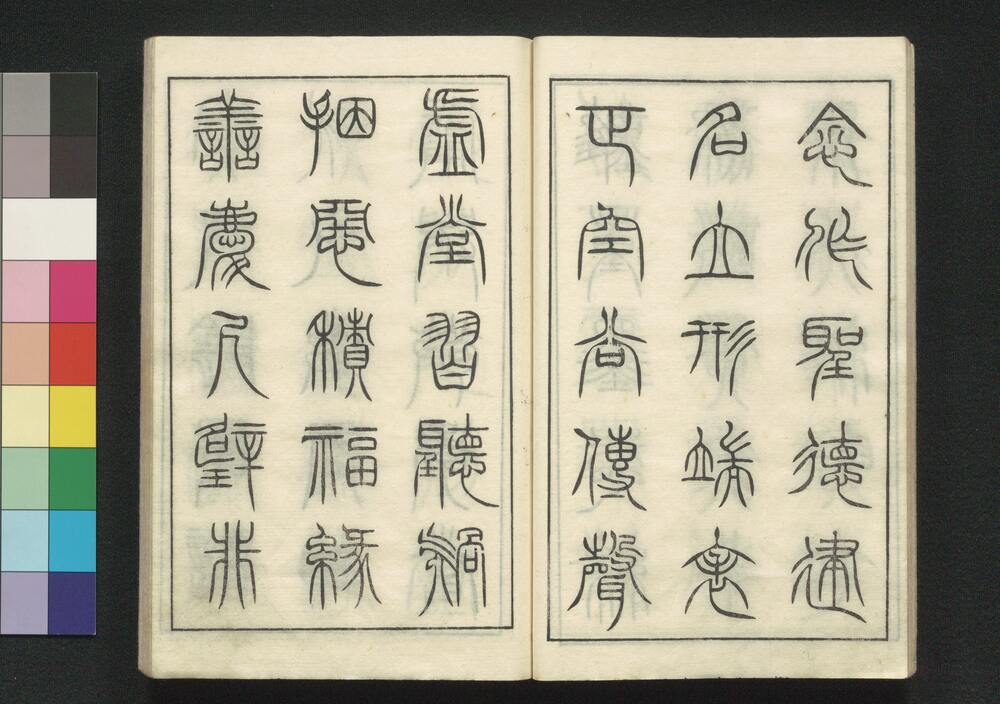 念作聖德建
名立形端表
正空谷傳聲
虛堂習聽禍
因惡積福緣
善慶尺璧非